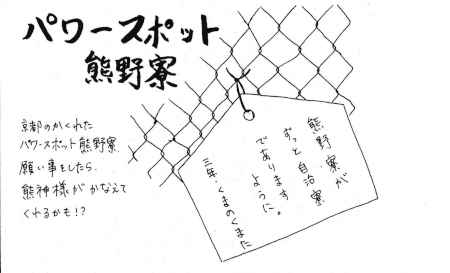 パワースポット
熊野寮
京都のかくれた
パワースポット熊野寮.
願い事をしたら.
熊神様がかなえて
くれるかも!?
熊野寮が
ずっと自治寮
であります
ように。
三年・くまのくまた